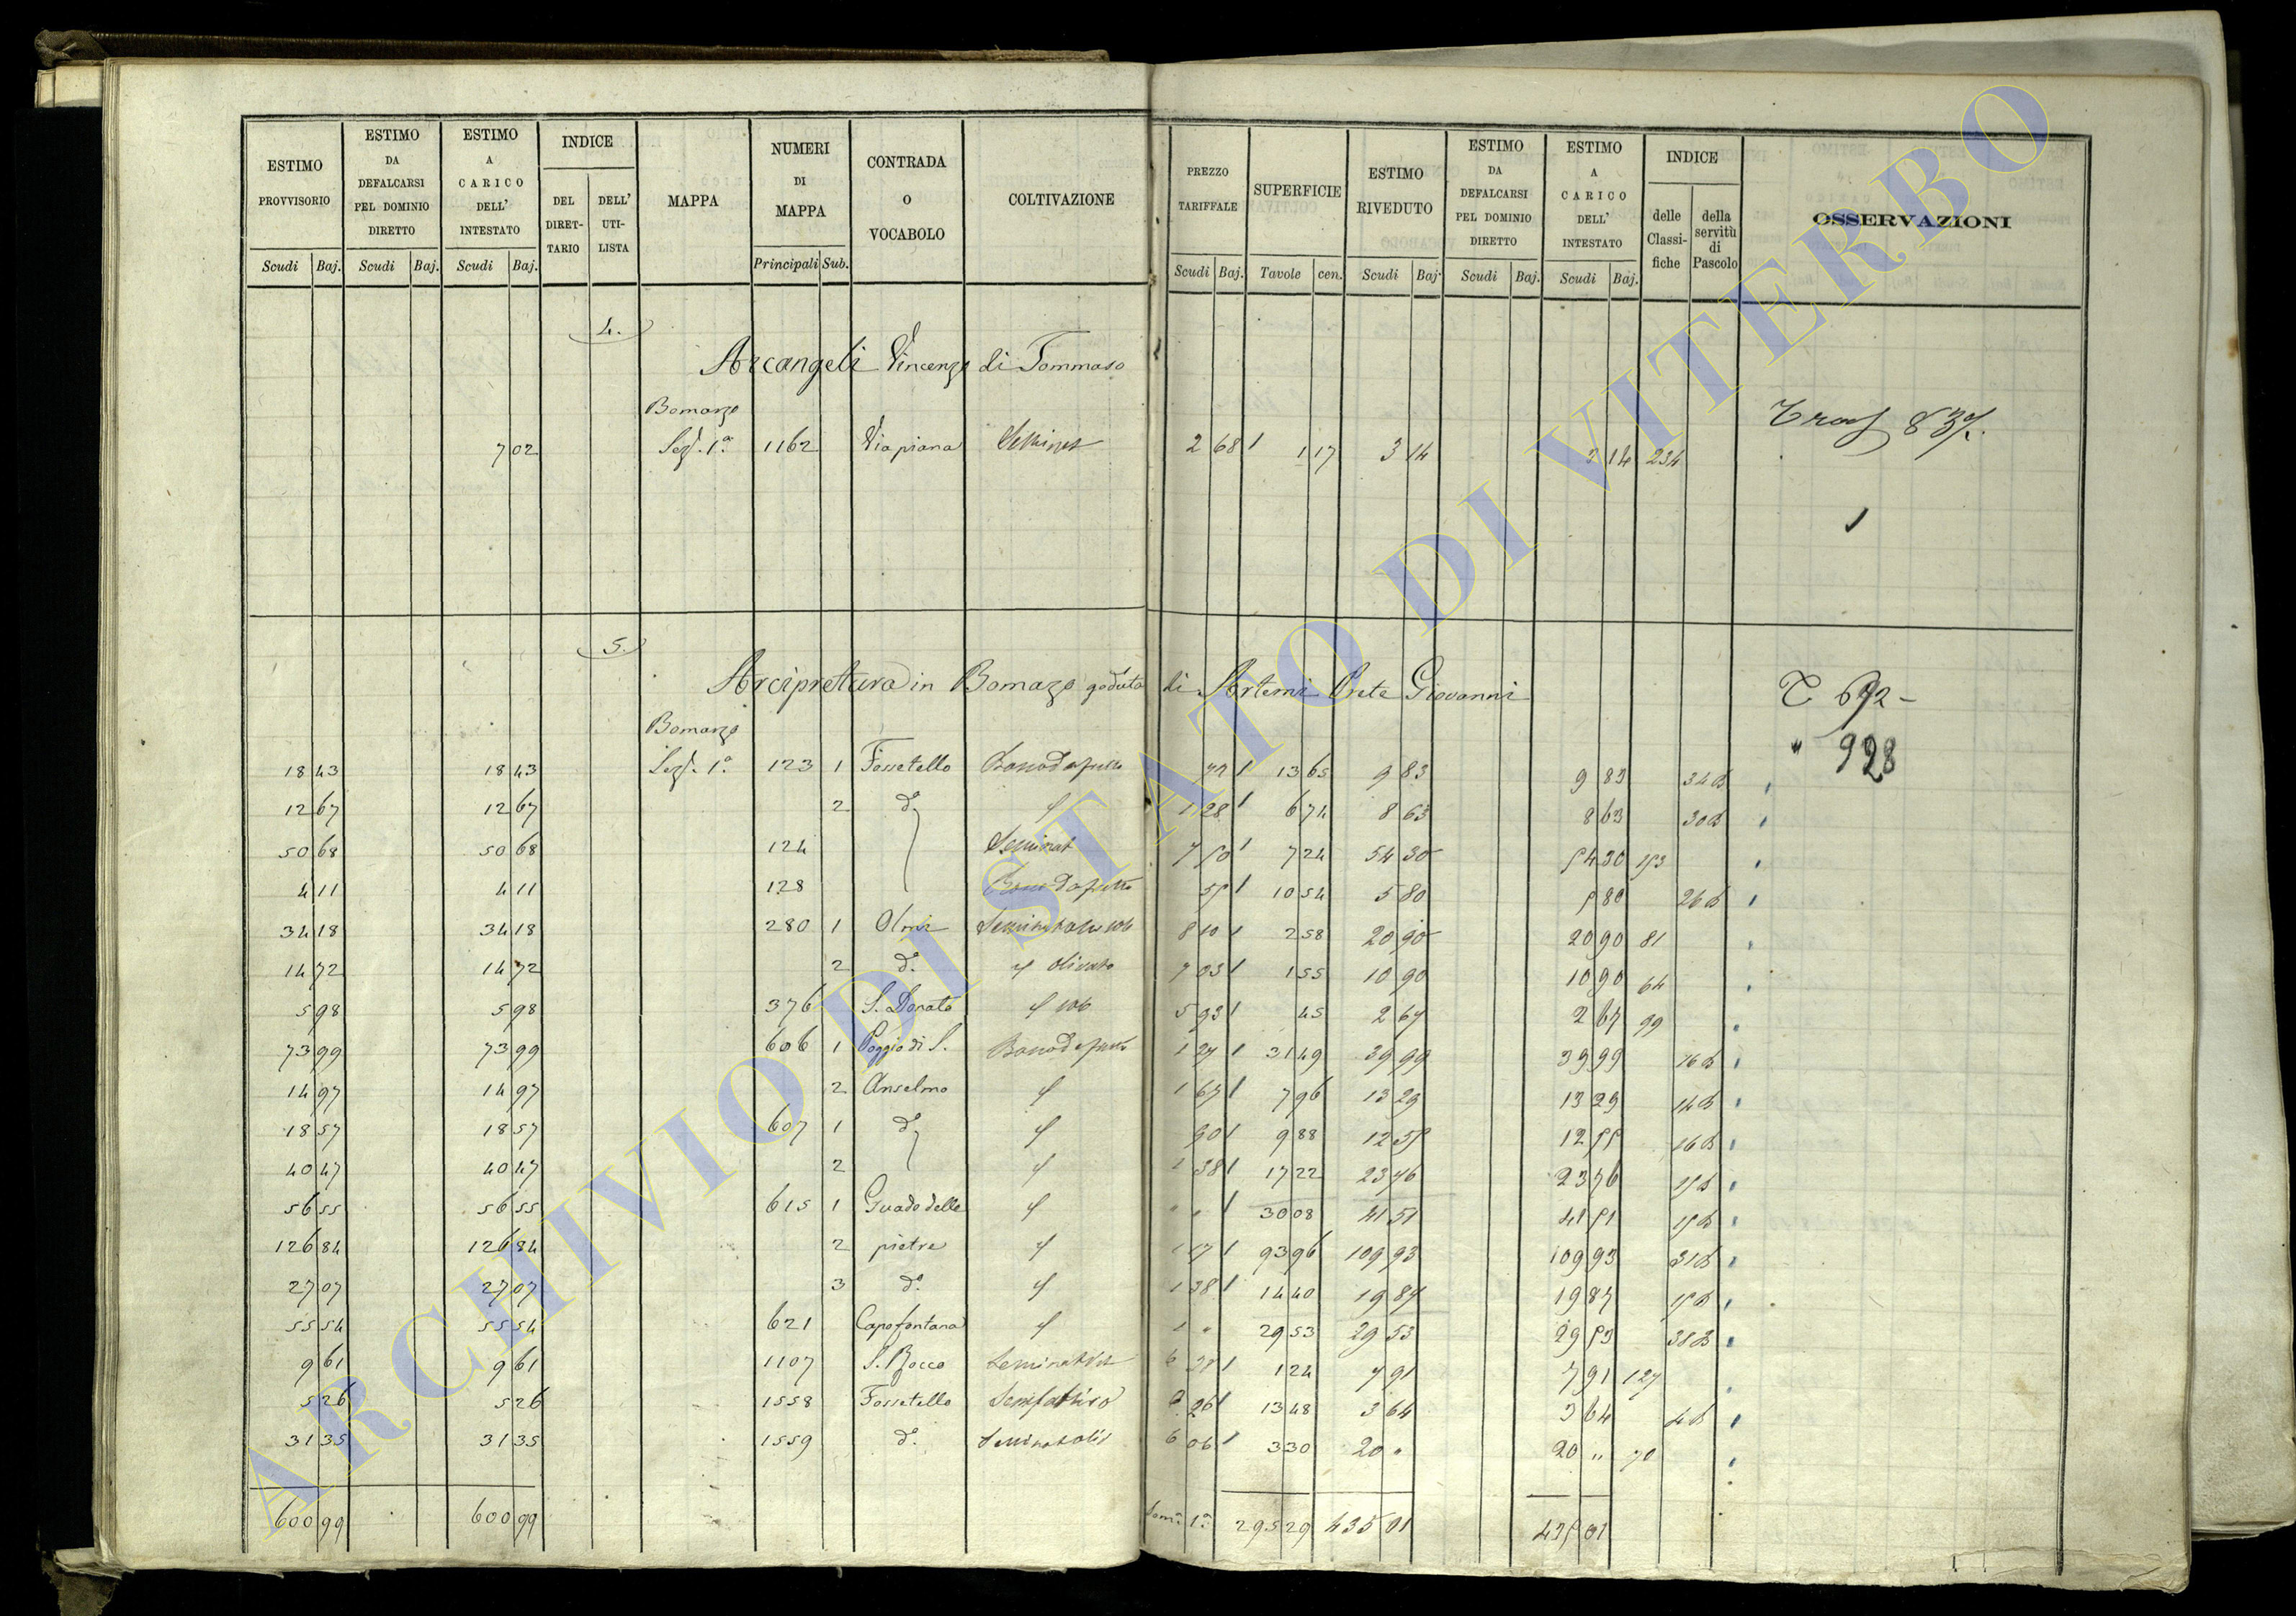 ESTIMO PROVVISORIO Scudi Baj. | ESTIMO DA DEFALCARSI PEL DOMINIO DIRETTO Scudi Baj. | ESTIMO A CARICO DELL' INTESTATO Scudi Baj. | INDICE DEL DIRET-TARIO DELL' UTI-LISTA | MAPPA | NUMERI DI MAPPA Principali Sub. | CONTRADA O VOCABOLO | COLTIVAZIONE | PREZZO TARIFFALE Scudi Baj. | SUPERFICIE Tavole cen. | ESTIMO RIVEDUTO Scudi Baj. | ESTIMO DA DEFALCARSI PEL DOMINIO DIRETTO Scudi Baj. | ESTIMO A CARICO DELL' INTESTATO Scudi Baj. | INDICE delle Classi-fiche della servitù di Pascolo | OSSERVAZIONI
4.
Arcangeli Vincenzo di Tommaso
Bomarzo
7 02 Sez. 1ª 1162 Via piana 2 68 1 17 3 14 3 14 234
5.
Arcipretura in Bomarzo goduta di Artemi Prete Giovanni
C 692
Bomarzo
" 928
18 43 18 43 Sez. 1ª 123 1 Fossetello 72 13 65 9 83 9 83 34
12 67 12 67 2 d° 1 28 6 74 8 63 8 63 30
50 68 50 68 124 Seminat 7 50 7 24 54 30 54 30 153
4 11 4 11 128 55 10 54 5 80 5 80 26
34 18 34 18 280 1 Olmi 8 10 2 58 20 90 20 90 81
14 72 14 72 2 d° olivato 7 03 1 55 10 90 10 90 64
5 98 5 98 376 S. Donato 5 93 45 2 67 2 67 99
73 99 73 99 606 1 Poggio di S. 1 27 31 49 39 99 39 99 16
14 97 14 97 2 Anselmo 1 67 7 96 13 29 13 29 14
18 57 18 57 607 1 d° 9 88 12 55 12 55 16
40 47 40 47 2 1 38 17 22 23 76 23 76 15
56 55 56 55 615 1 Guado delle 30 08 41 51 41 51 15
126 84 126 84 2 pietre 1 17 93 96 109 93 109 93 31
27 07 27 07 3 d° 1 38 14 40 19 87 19 87 15
55 54 55 54 621 Capofontana 1 " 29 53 29 53 29 53 38
9 61 9 61 1107 S. Rocco 1 24 7 91 7 91 127
5 26 5 26 1558 Fossetello 26 13 48 3 64 3 64
31 35 31 35 1559 d° 6 06 3 30 20 " 20 " 70
600 99 600 99 Som. 1ª 295 29 435 01 435 01
ARCHIVIO DI STATO DI VITERBO